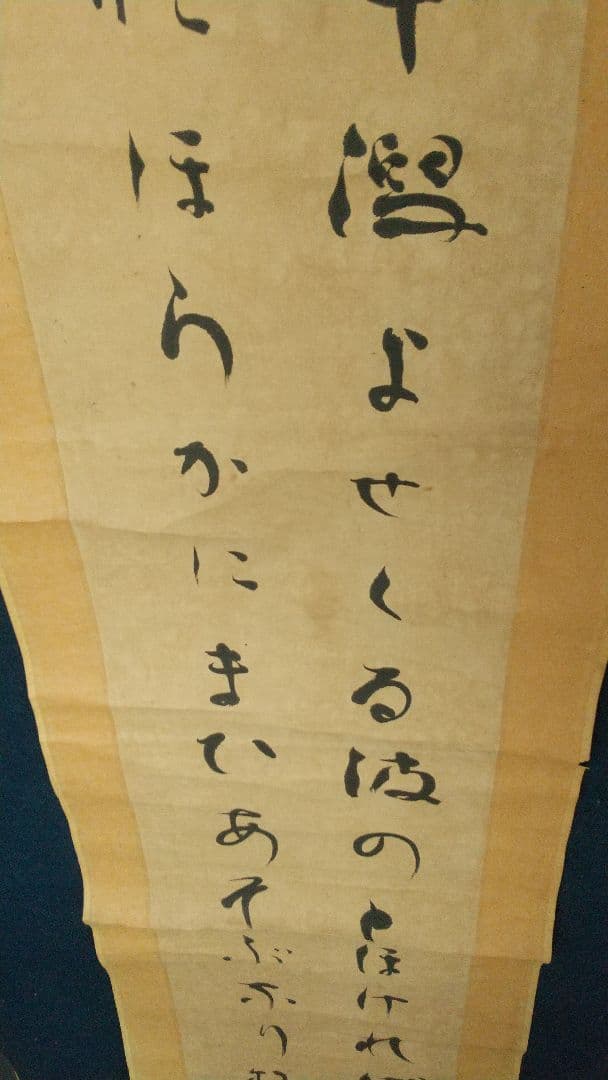 干潟よせくる波のとほけれ
ほらかにまひあそぶなり